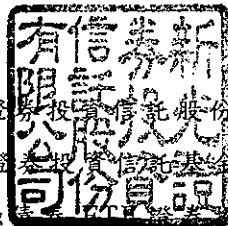 新光證
券投資
信託股份
有限公司
證券投資信託股份
證券投資信託基金